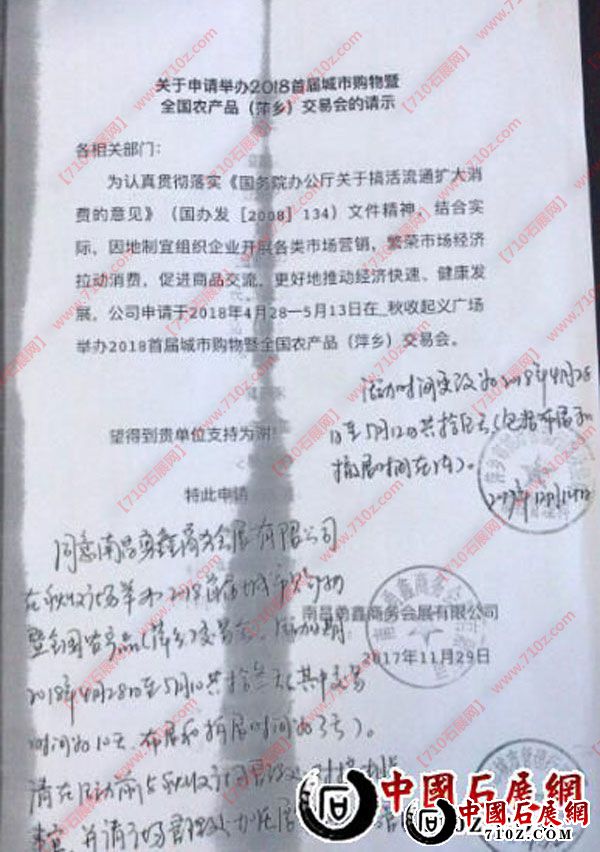 关于申请举办2018首届城市购物暨
全国农产品（萍乡）交易会的请示
各相关部门：
为认真贯彻落实《国务院办公厅关于搞活流通扩大消
费的意见》（国办发［2008］134）文件精神，结合实
际，因地制宜组织企业开展各类市场营销，繁荣市场经济
拉动消费，促进商品交流，更好地推动经济快速、健康发
展，公司申请于2018年4月28—5月13日在_秋收起义广场
举办2018首届城市购物暨全国农产品（萍乡）交易会。
活动时间变改为2018年4月28
日至5月12日共拾伍天（包括布展和
撤展时间在内）。
望得到贵单位支持为谢
特此申请
同意南昌勇鑫商务会展有限公司
在秋收广场举办2018首届城市购物
暨全国农产品（萍乡）交易会，活动日期
2018年4月28日至5月10共拾叁天（其中
时间为10天，布展和撤展时间为3天）。
南昌勇鑫商务会展有限公司
2017年11月29日
中國石展網
710Z.COM
中國石展網
710Z.COM
【710石展网】
www.710z.com